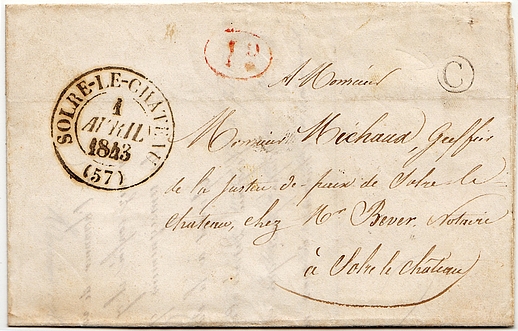 1 D
A Monsieur
C
SOLRE-LE-CHATEAU
1
AVRIL
1843
(57)
Monsieur Michaud, Greffier
de la Justice de paix de Solre-le-
chateau, chez Mr Bever, Notaire
à Solre le chateau